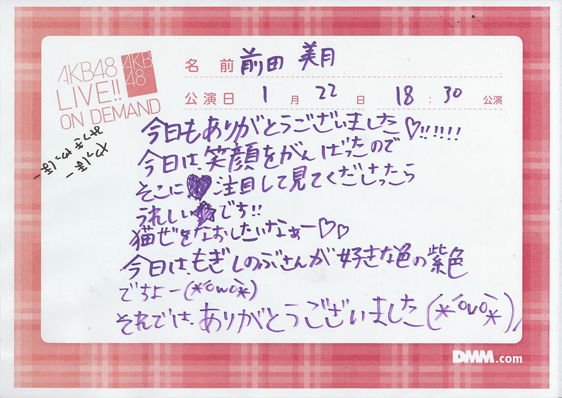 AKB48
LIVE!!
ON DEMAND
AKB
48
名 前 前田 美月
公演日 1 月 22 日 18 : 30 公演
やっほー
みつきやっほー
今日もありがとうございました♡!!!!!!
今日は笑顔をがんばったので
そこに♥注目して見てくださったら
うれしい★でち!!
猫ぜをなおしたいなぁー♡♡
今日は、もぎしのぶさんが好きな色の紫色
でちよー(*´ω`*)
それでは、ありがとうございました(*´ω`*)ノ
DMM.com